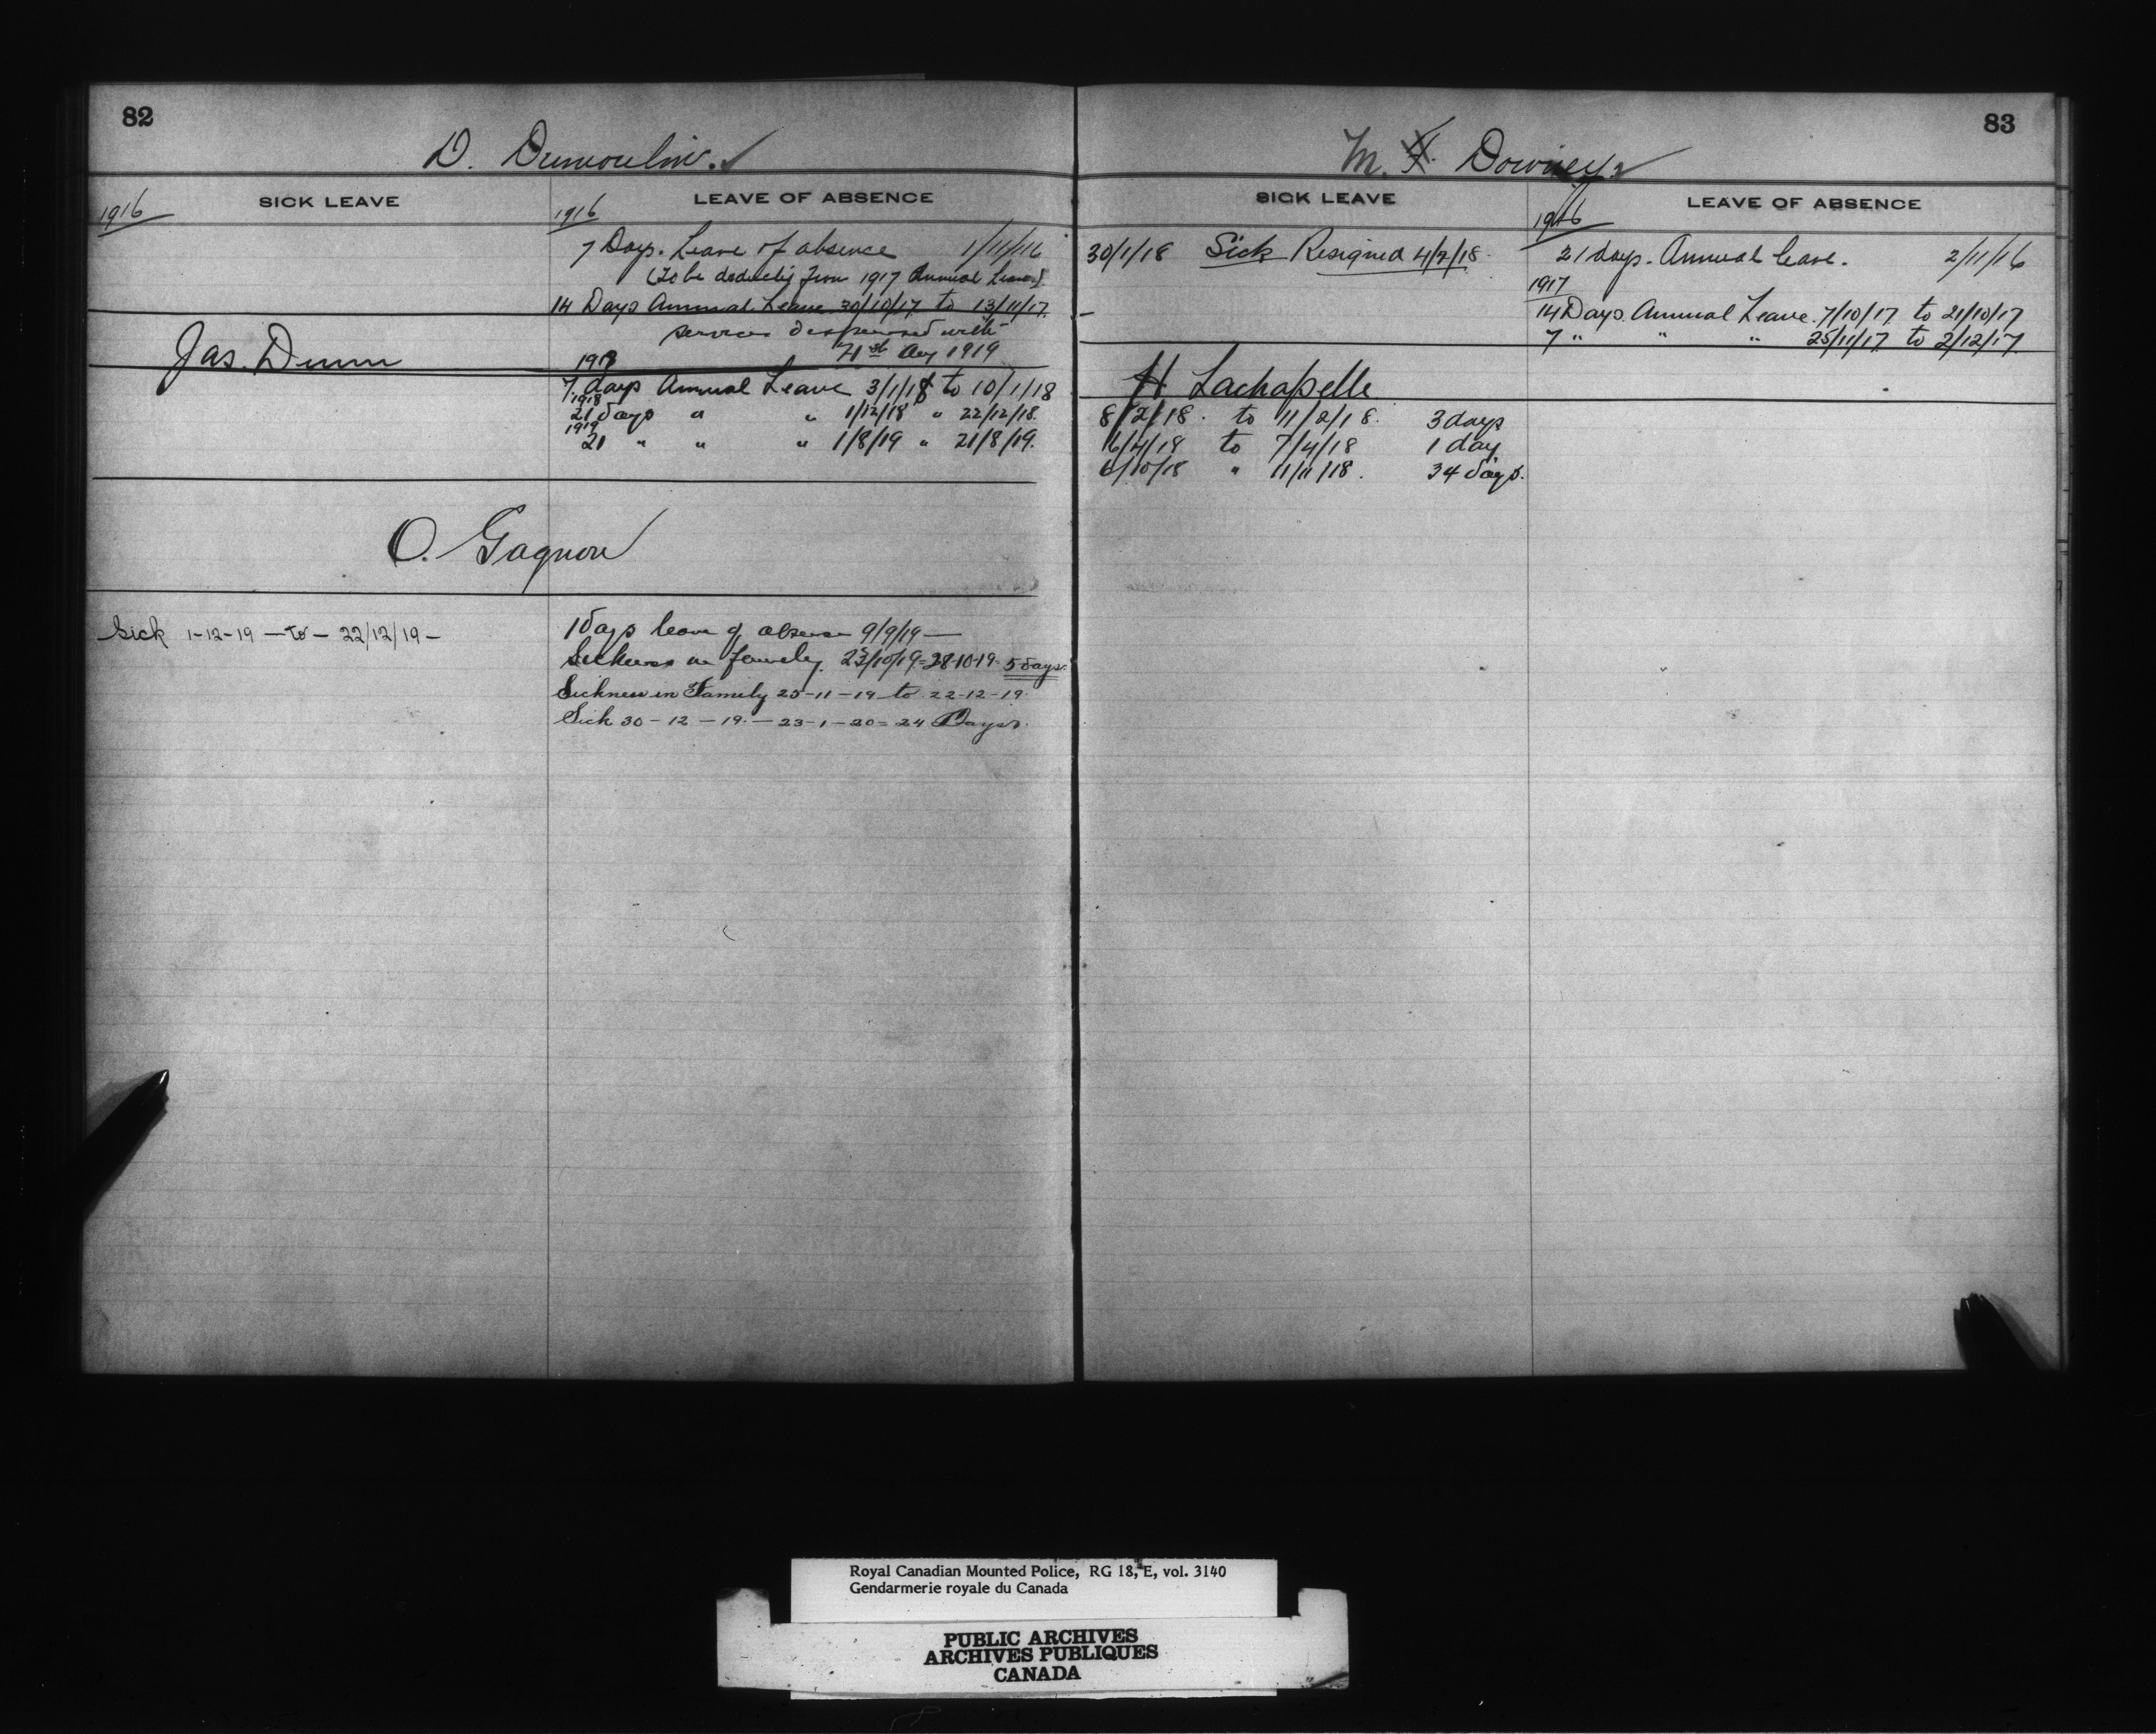 82
D. Dumoulin.
SICK LEAVE
LEAVE OF ABSENCE
1916
1916
7 Days. Leave of absence 1/11/16
(To be deducted from 1917 Annual Leave).
14 Days Annual Leave 30/10/17 to 13/11/17.
services dispensed with
1919
Jas. Dunn
7 days Annual Leave 3/1/18 to 10/1/18
1918
21 days " " 1/12/18 " 22/12/18.
1919
21 " " " 1/8/19 " 21/8/19.
O. Gagnon
Sick 1-12-19 — to — 22/12/19 -
1 Days leave of absence 9/9/19 —
Sickness in family 23/10/19 = 28-10-19 5 days.
Sickness in Family 25-11-19 to 22-12-19.
Sick 30-12-19 — 23-1-20 = 24 Days.
83
M. Downey.
SICK LEAVE
LEAVE OF ABSENCE
1916
30/1/18 Sick Resigned 4/2/18.
21 days. Annual leave. 2/11/16
1917
14 Days Annual Leave. 7/10/17 to 21/10/17
7 " " " 25/11/17 to 2/12/17.
H Lachapelle
8/2/18. to 11/2/18. 3 days
6/4/18 to 7/4/18 1 day
/10/18 " 11/11/18. 34 days.
Royal Canadian Mounted Police, RG 18, E, vol. 3140
Gendarmerie royale du Canada
PUBLIC ARCHIVES
ARCHIVES PUBLIQUES
CANADA